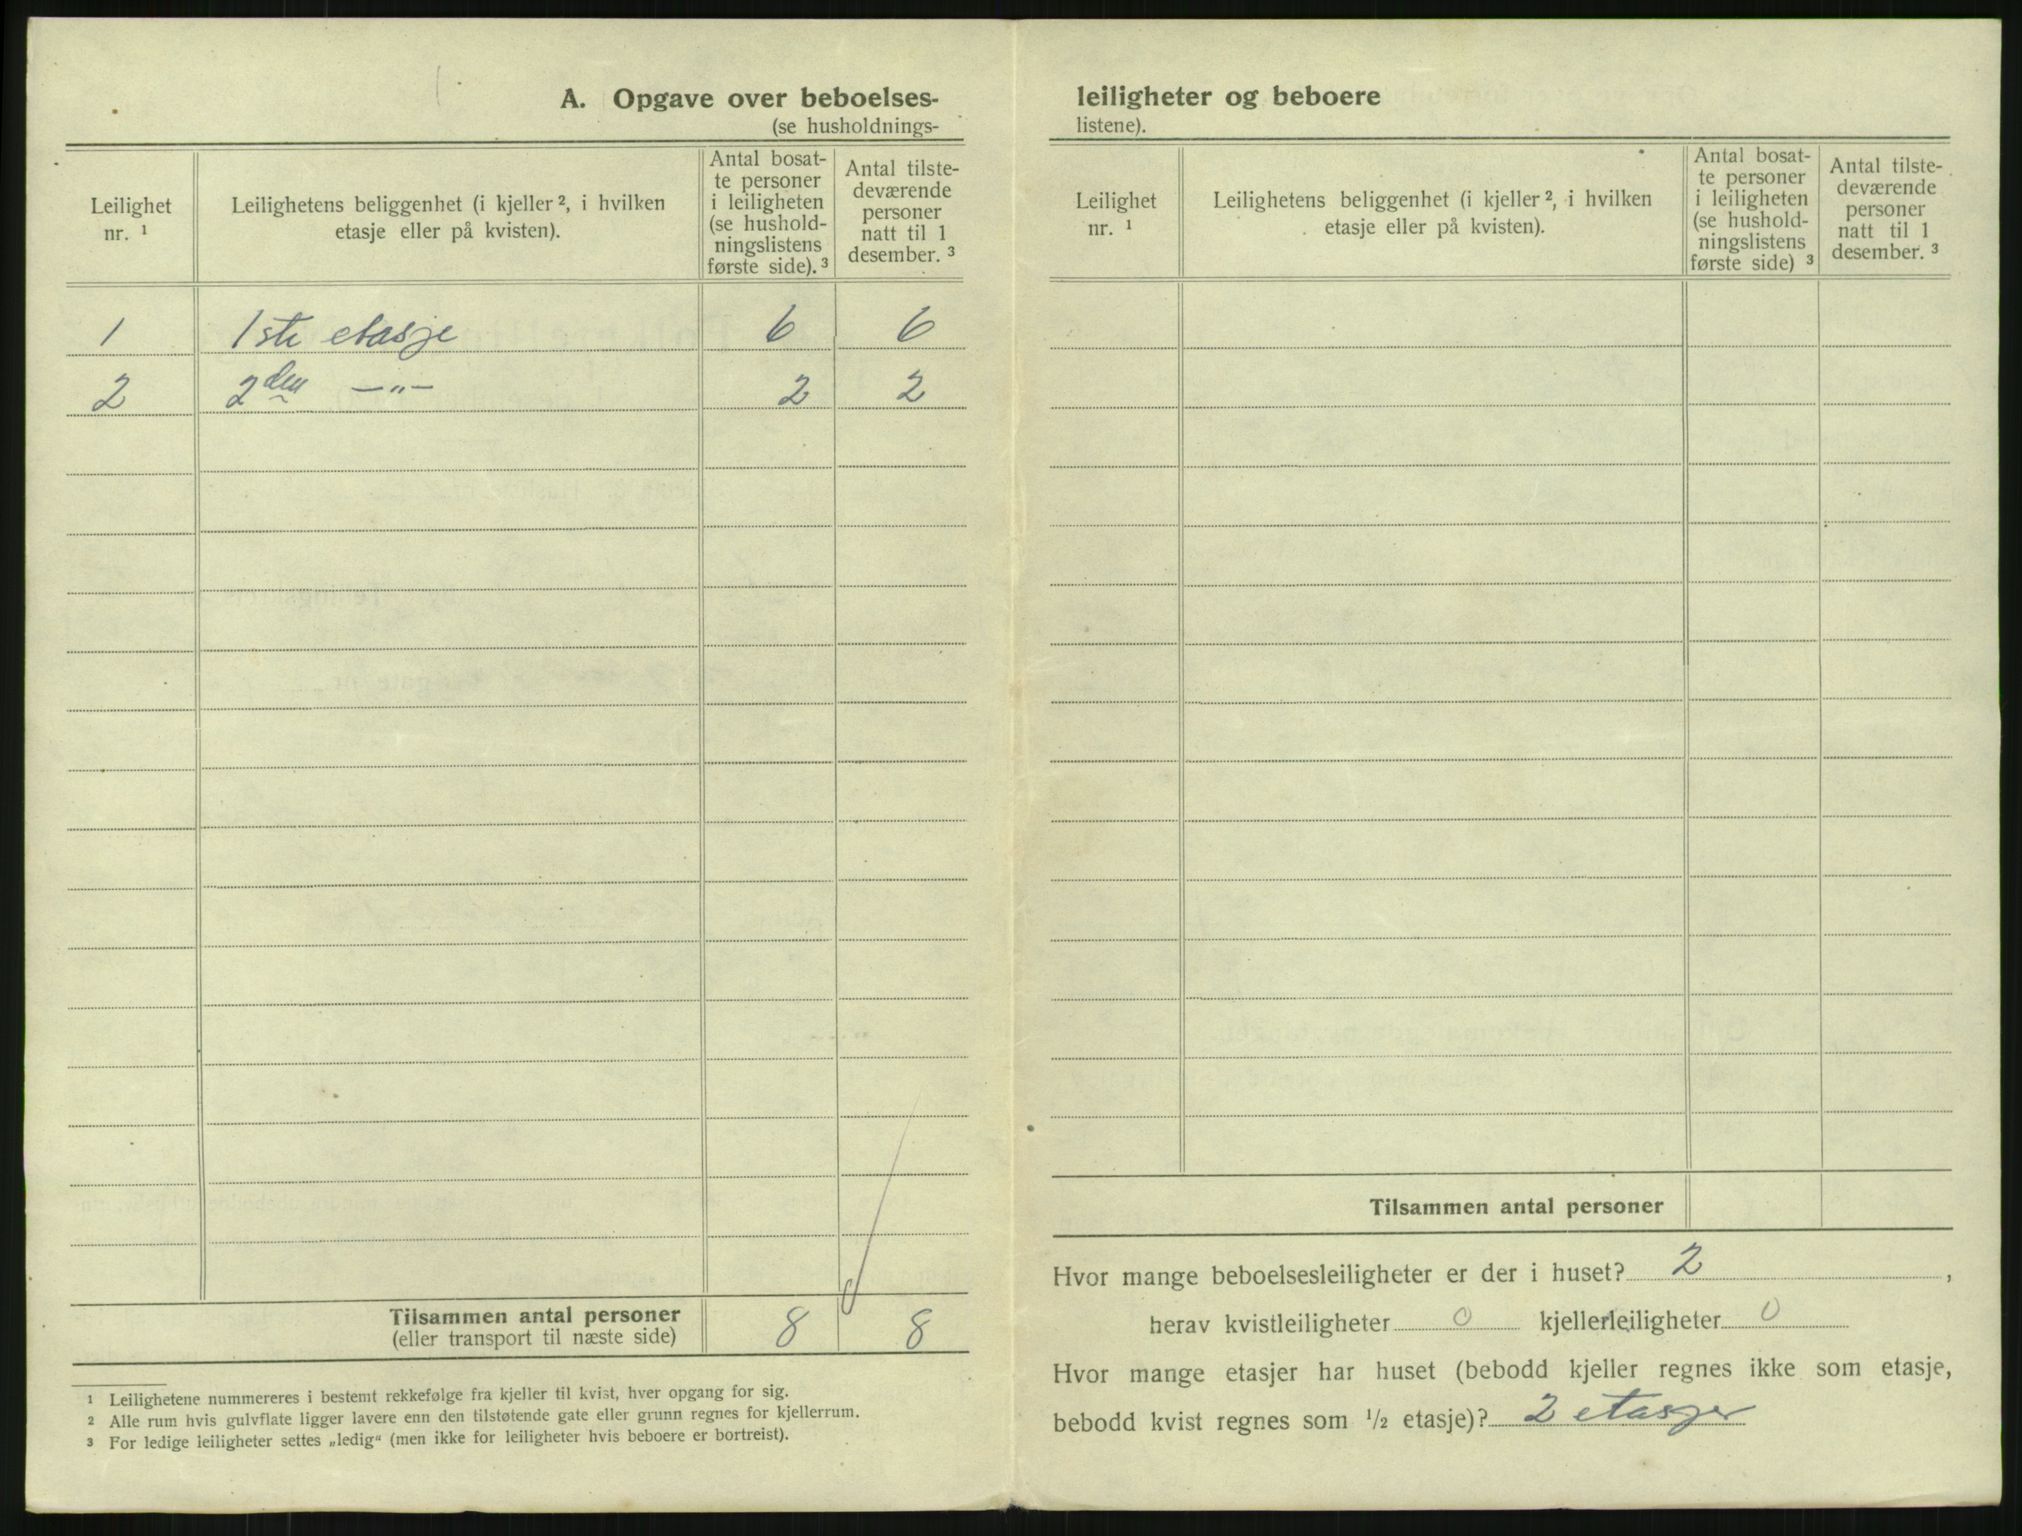 A. Opgave over beboelses-
(se husholdnings-
Leilighet nr. ¹
Leilighetens beliggenhet (i kjeller ², i hvilken etasje eller på kvisten).
Antal bosat-
te personer
i leiligheten
(se hushold-
ningslistens
første side). ³
Antal tilste-
deværende
personer
natt til 1
desember. ³
1 1ste etasje 6 6
2 2den —„— 2 2
Tilsammen antal personer 8 8
(eller transport til næste side)
¹ Leilighetene nummereres i bestemt rekkefølge fra kjeller til kvist, hver opgang for sig.
² Alle rum hvis gulvflate ligger lavere enn den tilstøtende gate eller grunn regnes for kjellerrum.
³ For ledige leiligheter settes „ledig“ (men ikke for leiligheter hvis beboere er bortreist).
leiligheter og beboere
listene).
Leilighet nr. ¹
Leilighetens beliggenhet (i kjeller ², i hvilken etasje eller på kvisten).
Antal bosat-
te personer
i leiligheten
(se hushold-
ningslistens
første side) ³
Antal tilste-
deværende
personer
natt til 1
desember. ³
Tilsammen antal personer
Hvor mange beboelsesleiligheter er der i huset? 2 ,
herav kvistleiligheter 0 kjellerleiligheter 0
Hvor mange etasjer har huset (bebodd kjeller regnes ikke som etasje,
bebodd kvist regnes som ½ etasje)? 2 etasjer